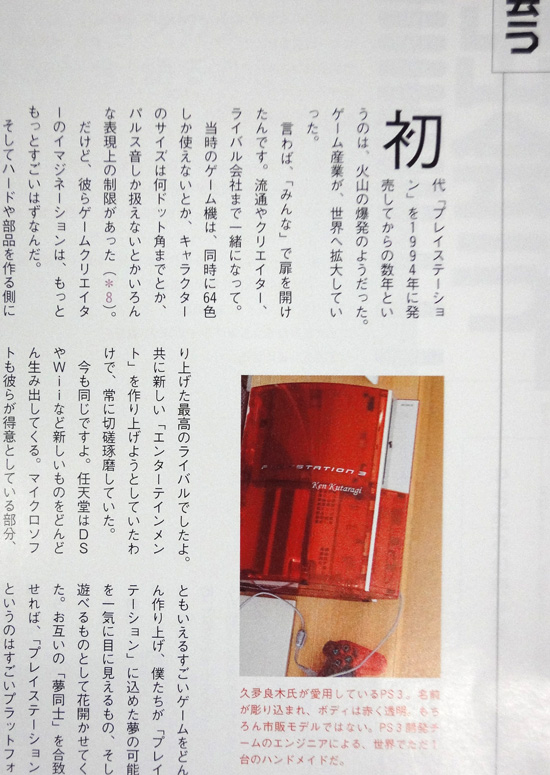 初
代「プレイステーショ
ン」を1994年に発
売してからの数年とい
うのは、火山の爆発のようだった。
ゲーム産業が、世界へ拡大してい
った。
言わば、「みんな」で扉を開け
たんです。流通やクリエイター、
ライバル会社まで一緒になって。
当時のゲーム機は、同時に64色
しか使えないとか、キャラクター
のサイズは何ドット角までとか、
パルス音しか扱えないとかいろん
な表現上の制限があった(*8)。
だけど、彼らゲームクリエイタ
ーのイマジネーションは、もっと
もっとすごいはずなんだ。
そしてハードや部品を作る側に
PLAYSTATION 3
Ken Kutaragi
り上げた最高のライバルでしたよ。
共に新しい「エンターテインメン
ト」を作り上げようとしていたわ
けで、常に切磋琢磨していた。
今も同じですよ。任天堂はDS
やWiiなど新しいものをどんど
ん生み出してくる。マイクロソフ
トも彼らが得意としている部分、
久夛良木氏が愛用しているPS3。名前
が彫り込まれ、ボディは赤く透明。もち
ろん市販モデルではない。PS3開発チ
ームのエンジニアによる、世界でただ1
台のハンドメイドだ。
ともいえるすごいゲームをどん
ん作り上げ、僕たちが「プレイ
テーション」に込めた夢の可能
を一気に目に見えるもの、そし
遊べるものとして花開かせてく
た。お互いの「夢同士」を合致
せれば、「プレイステーション
というのはすごいプラットフォ